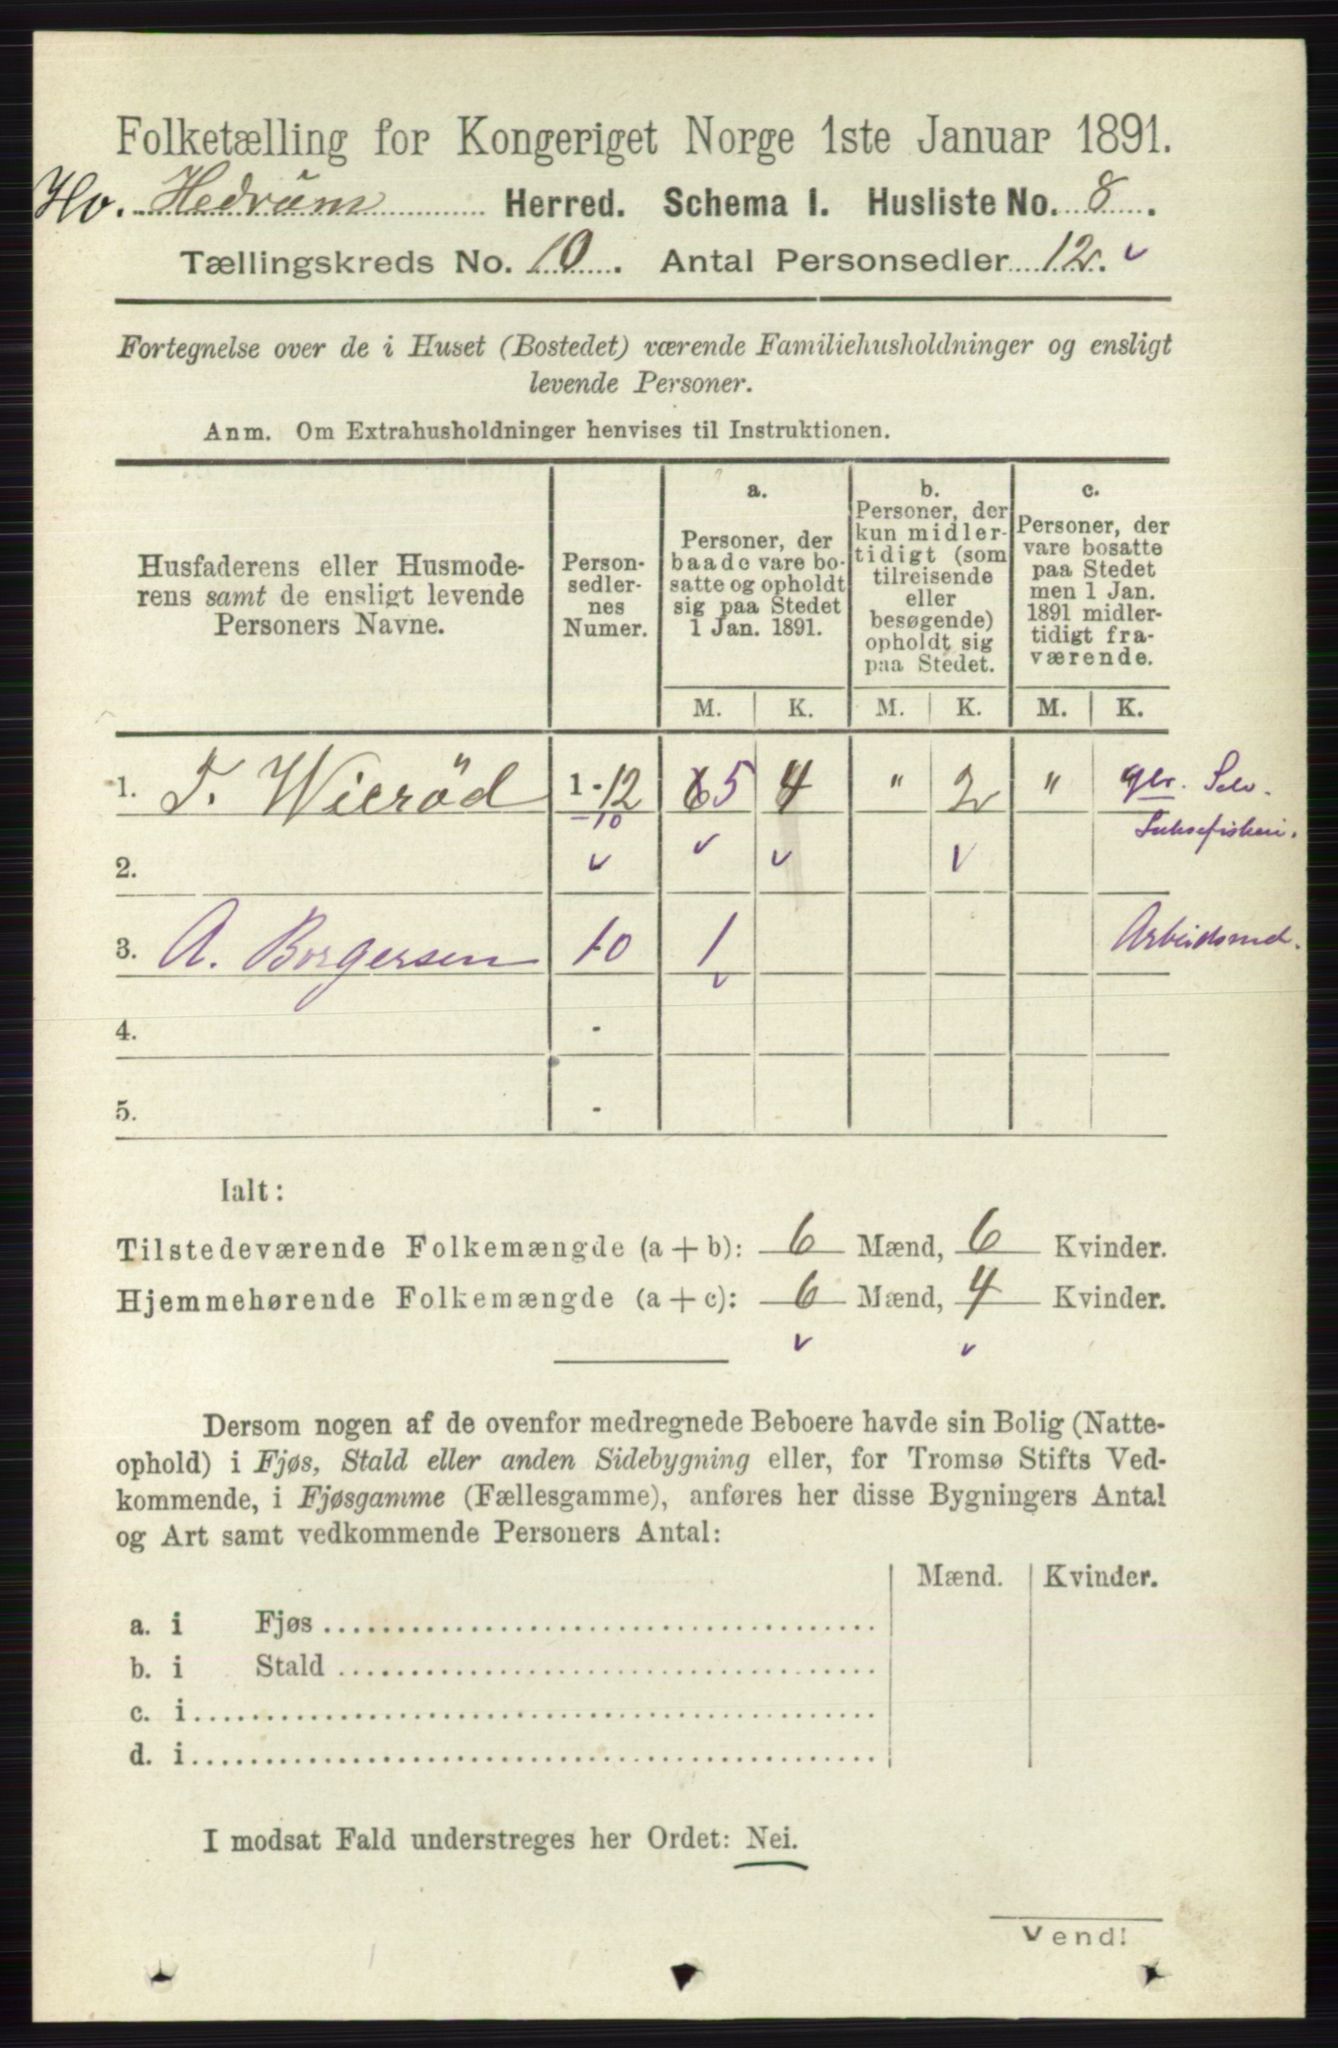 Folketælling for Kongeriget Norge 1ste Januar 1891.
Hv. Hedrum Herred. Schema I. Husliste No. 8.
Tællingskreds No. 10. Antal Personsedler 12. v
Fortegnelse over de i Huset (Bostedet) værende Familiehusholdninger og ensligt
levende Personer.
Anm. Om Extrahusholdninger henvises til Instruktionen.
Husfaderens eller Husmode-
rens samt de ensligt levende
Personers Navne.
Person-
sedler-
nes
Numer.
a.
Personer, der
baade vare bo-
satte og opholdt
sig paa Stedet
1 Jan. 1891.
b.
Personer, der
kun midler-
tidigt (som
tilreisende
eller
besøgende)
opholdt sig
paa Stedet.
c.
Personer, der
vare bosatte
paa Stedet
men 1 Jan.
1891 midler-
tidigt fra-
værende.
M. K. M. K. M. K.
1. T. Wierød 1-12 6 5 4 " 2 " Gbr. Selv.
-10 Laksefiskeri.
2. v v v v
3. A. Borgersen 10 1 Arbeidsmd.
v
4. -
5. -
Ialt:
Tilstedeværende Folkemængde (a + b): 6 Mænd, 6 Kvinder.
Hjemmehørende Folkemængde (a + c): 6 Mænd, 4 Kvinder.
v v
Dersom nogen af de ovenfor medregnede Beboere havde sin Bolig (Natte-
ophold) i Fjøs, Stald eller anden Sidebygning eller, for Tromsø Stifts Ved-
kommende, i Fjøsgamme (Fællesgamme), anføres her disse Bygningers Antal
og Art samt vedkommende Personers Antal:
Mænd. Kvinder.
a. i Fjøs
b. i Stald
c. i
d. i
I modsat Fald understreges her Ordet: Nei.
Vend!